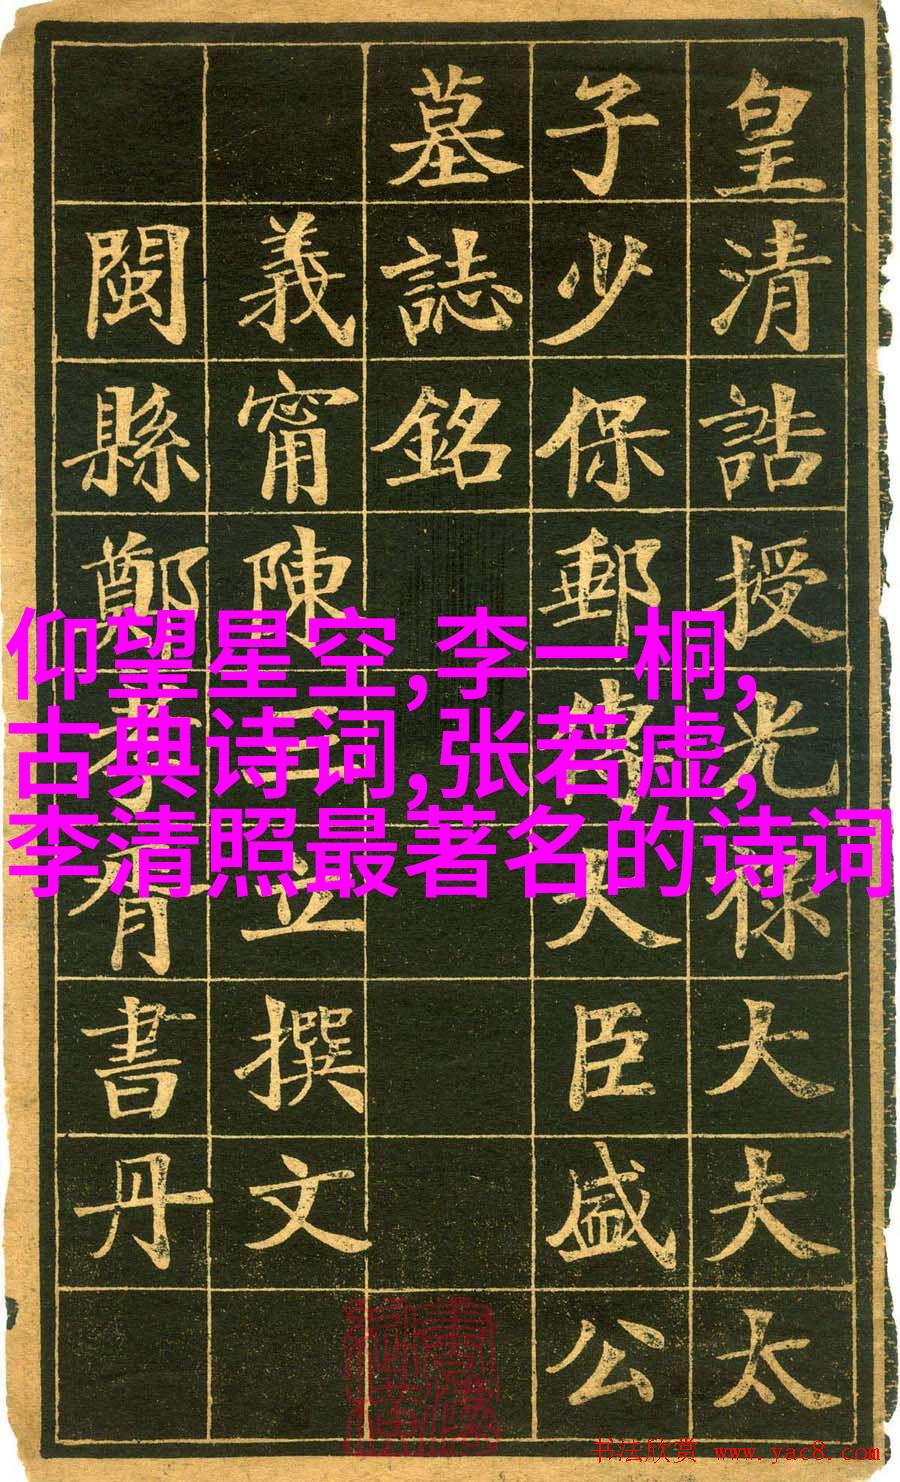 皇清誥授光祿大夫太
子少保郵傳大臣盛公
墓誌銘
義甯陳三立撰文
閩縣鄭孝胥書丹
仰望星空,李一桐,
古典诗词,张若虚,
李清照最著名的诗词
书法欣赏 www.yac8.com